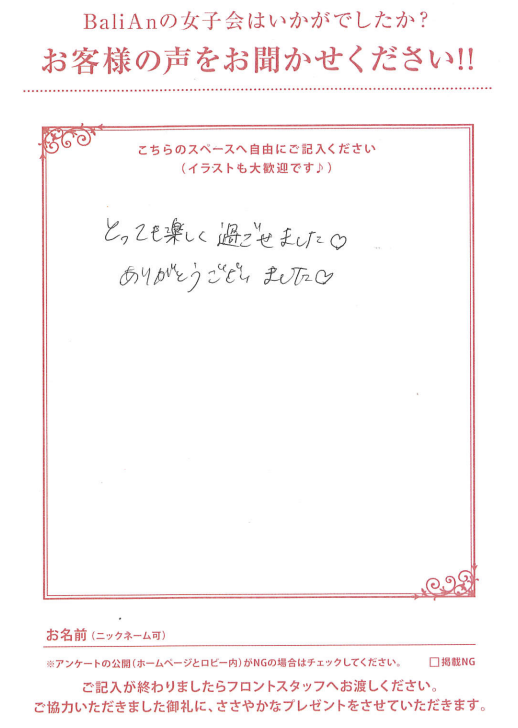 BaliAnの女子会はいかがでしたか？
お客様の声をお聞かせください!!
こちらのスペースへ自由にご記入ください
（イラストも大歓迎です♪）
とっても楽しく過ごせました♡
ありがとうございました♡
お名前（ニックネーム可）
※アンケートの公開（ホームページとロビー内）がNGの場合はチェックしてください。 □掲載NG
ご記入が終わりましたらフロントスタッフへお渡しください。
ご協力いただきました御礼に、ささやかなプレゼントをさせていただきます。